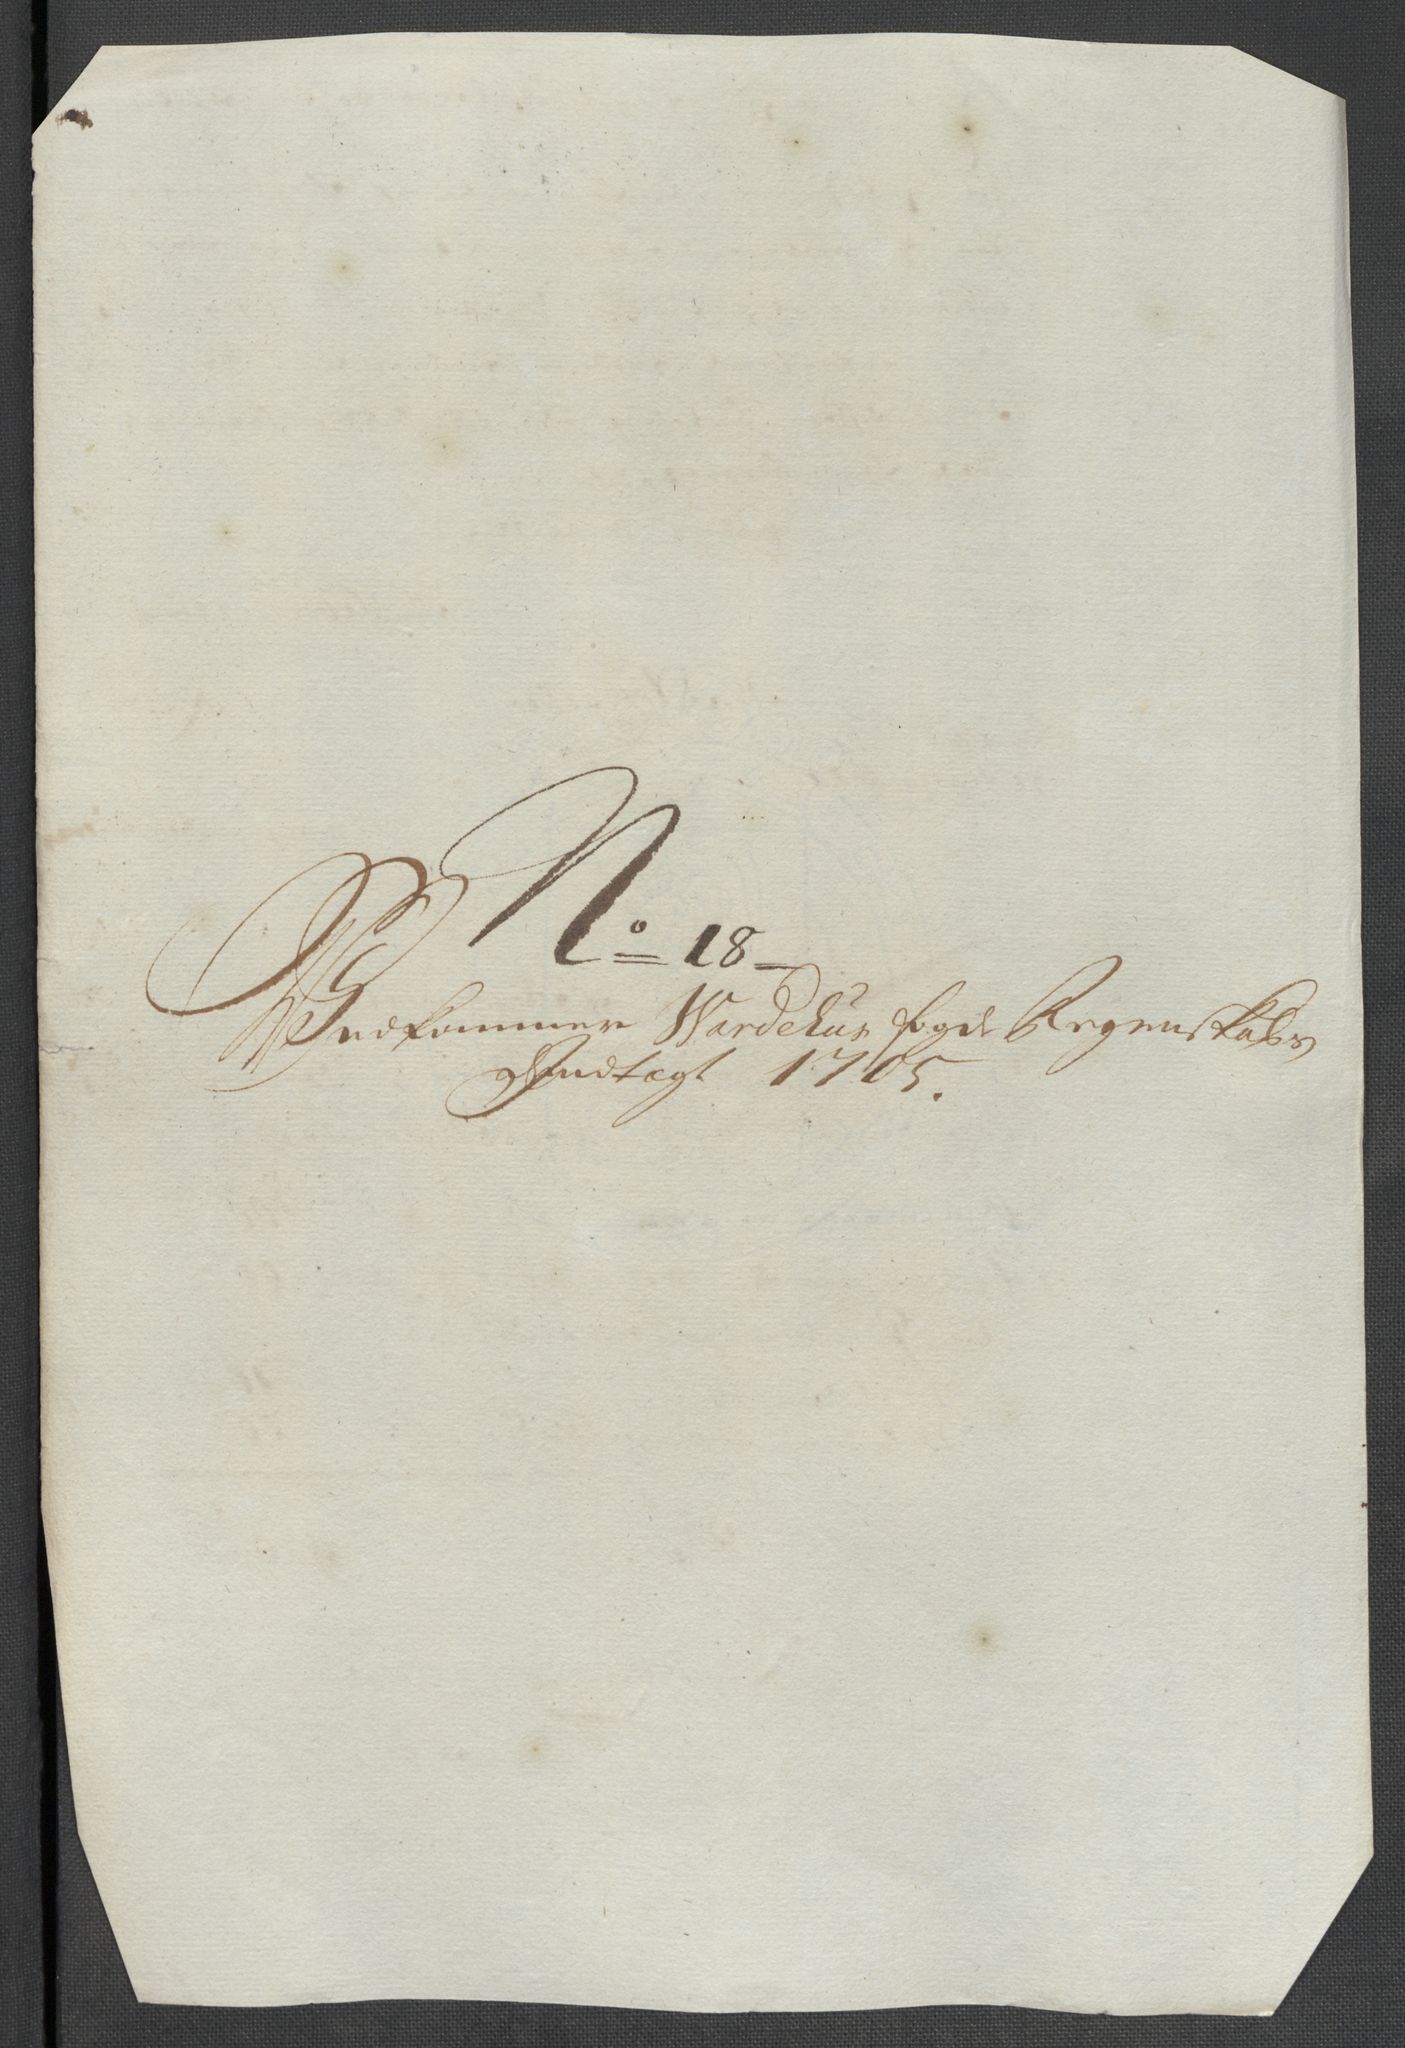 No 18
Vedkommer Wardehus fogde Regenskabs
Indtægt 1705.